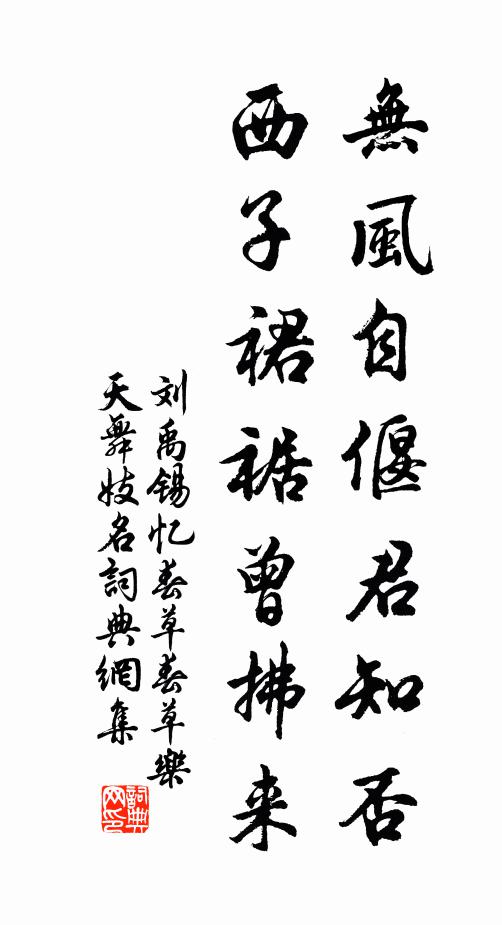 無風自偃君知否
西子裙裾曾拂来
刘禹锡忆春草春草樂
天舞妓名詞典網集
詞典
网印